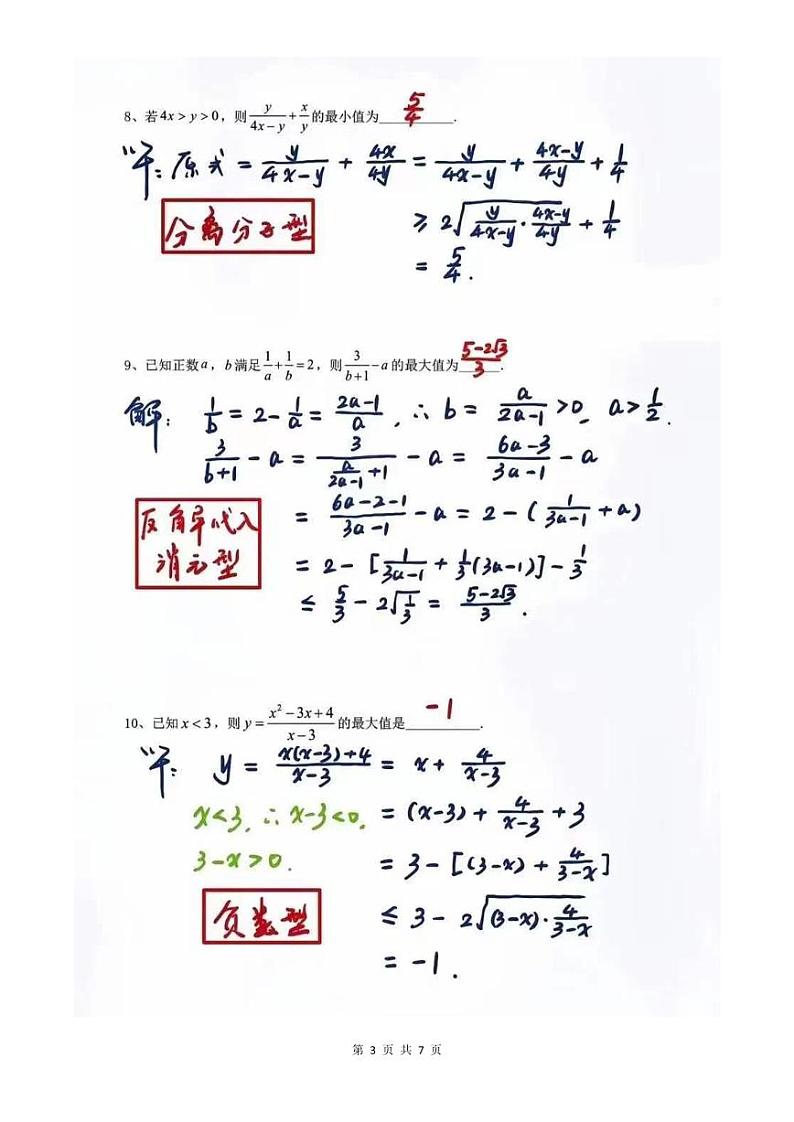 8、若4x > y > 0，则 y/(4x−y) + x/y 的最小值为 5/4 .
评：原式 = y/(4x−y) + 4x/4y = y/(4x−y) + (4x−y)/4y + 1/4
分离分子型
≥ 2√(y/(4x−y) · (4x−y)/4y) + 1/4
= 5/4 .
9、已知正数a，b满足 1/a + 1/b = 2，则 3/(b+1) − a 的最大值为 (5−2√3)/3 .
解： 1/b = 2 − 1/a = (2a−1)/a , ∴ b = a/(2a−1) > 0, a > 1/2 .
3/(b+1) − a = 3/(a/(2a−1) + 1) − a = (6a−3)/(3a−1) − a
反解代入
消元型
= (6a−2−1)/(3a−1) − a = 2 − ( 1/(3a−1) + a)
= 2 − [1/(3a−1) + 1/3(3a−1)] − 1/3
≤ 5/3 − 2√(1/3) = (5−2√3)/3 .
10、已知 x < 3，则 y = (x² − 3x + 4)/(x − 3) 的最大值是 −1 .
评： y = (x(x−3)+4)/(x−3) = x + 4/(x−3)
x<3, ∴ x−3<0,
= (x−3) + 4/(x−3) + 3
3−x>0.
= 3 − [(3−x) + 4/(3−x)]
负数型
≤ 3 − 2√((3−x) · 4/(3−x))
= −1 .
第 3 页 共 7 页